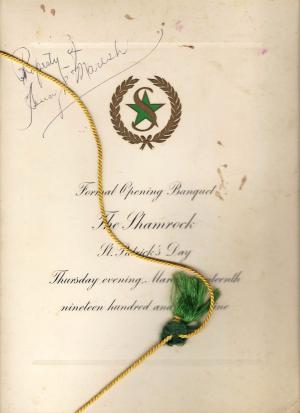 Property of
Henry Maresh
S
Formal Opening Banquet
The Shamrock
St. Patrick's Day
Thursday evening,
nineteen hundred and